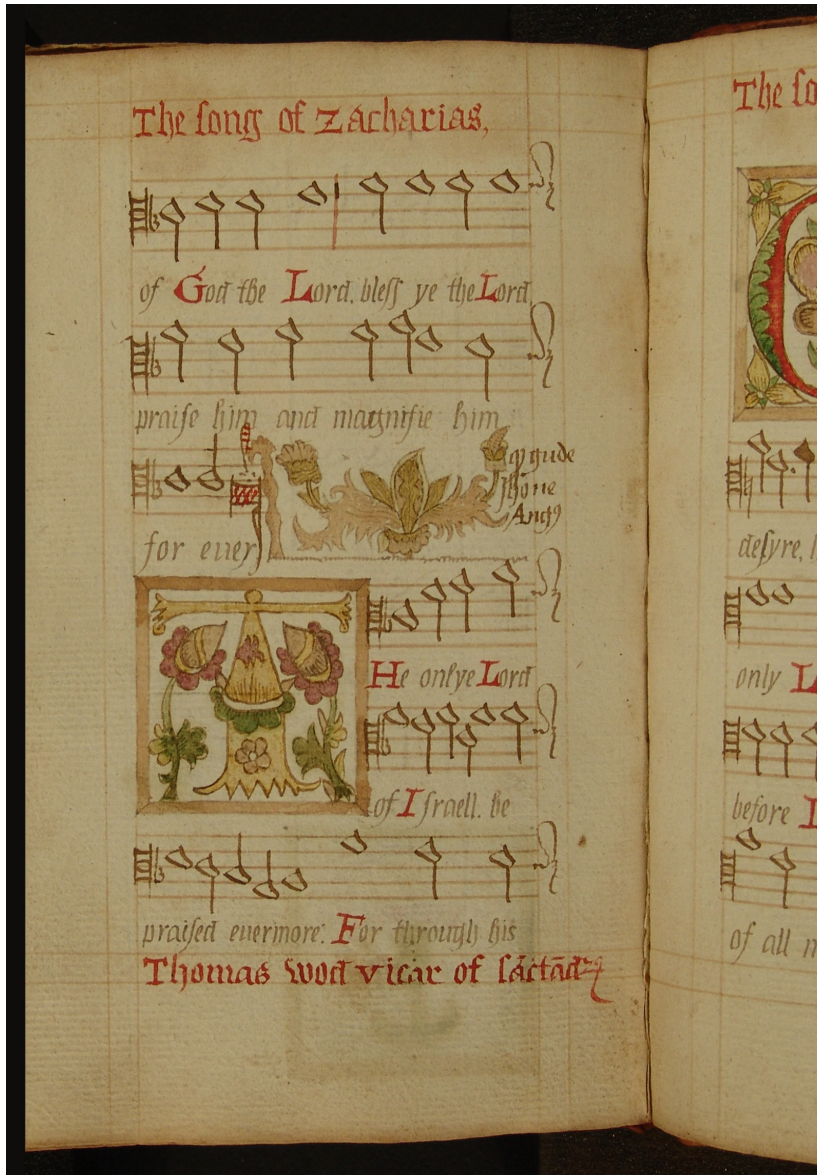 The song of Zacharias,
of God the Lord. bless ye the Lord,
praise him and magnifie him
for euer
q gude
Jhone
Ang9
THe onlye Lord
of Israell. be
praised euermore: For through his
Thomas wod vicar of
The so
desyre,
only L
before I
of all